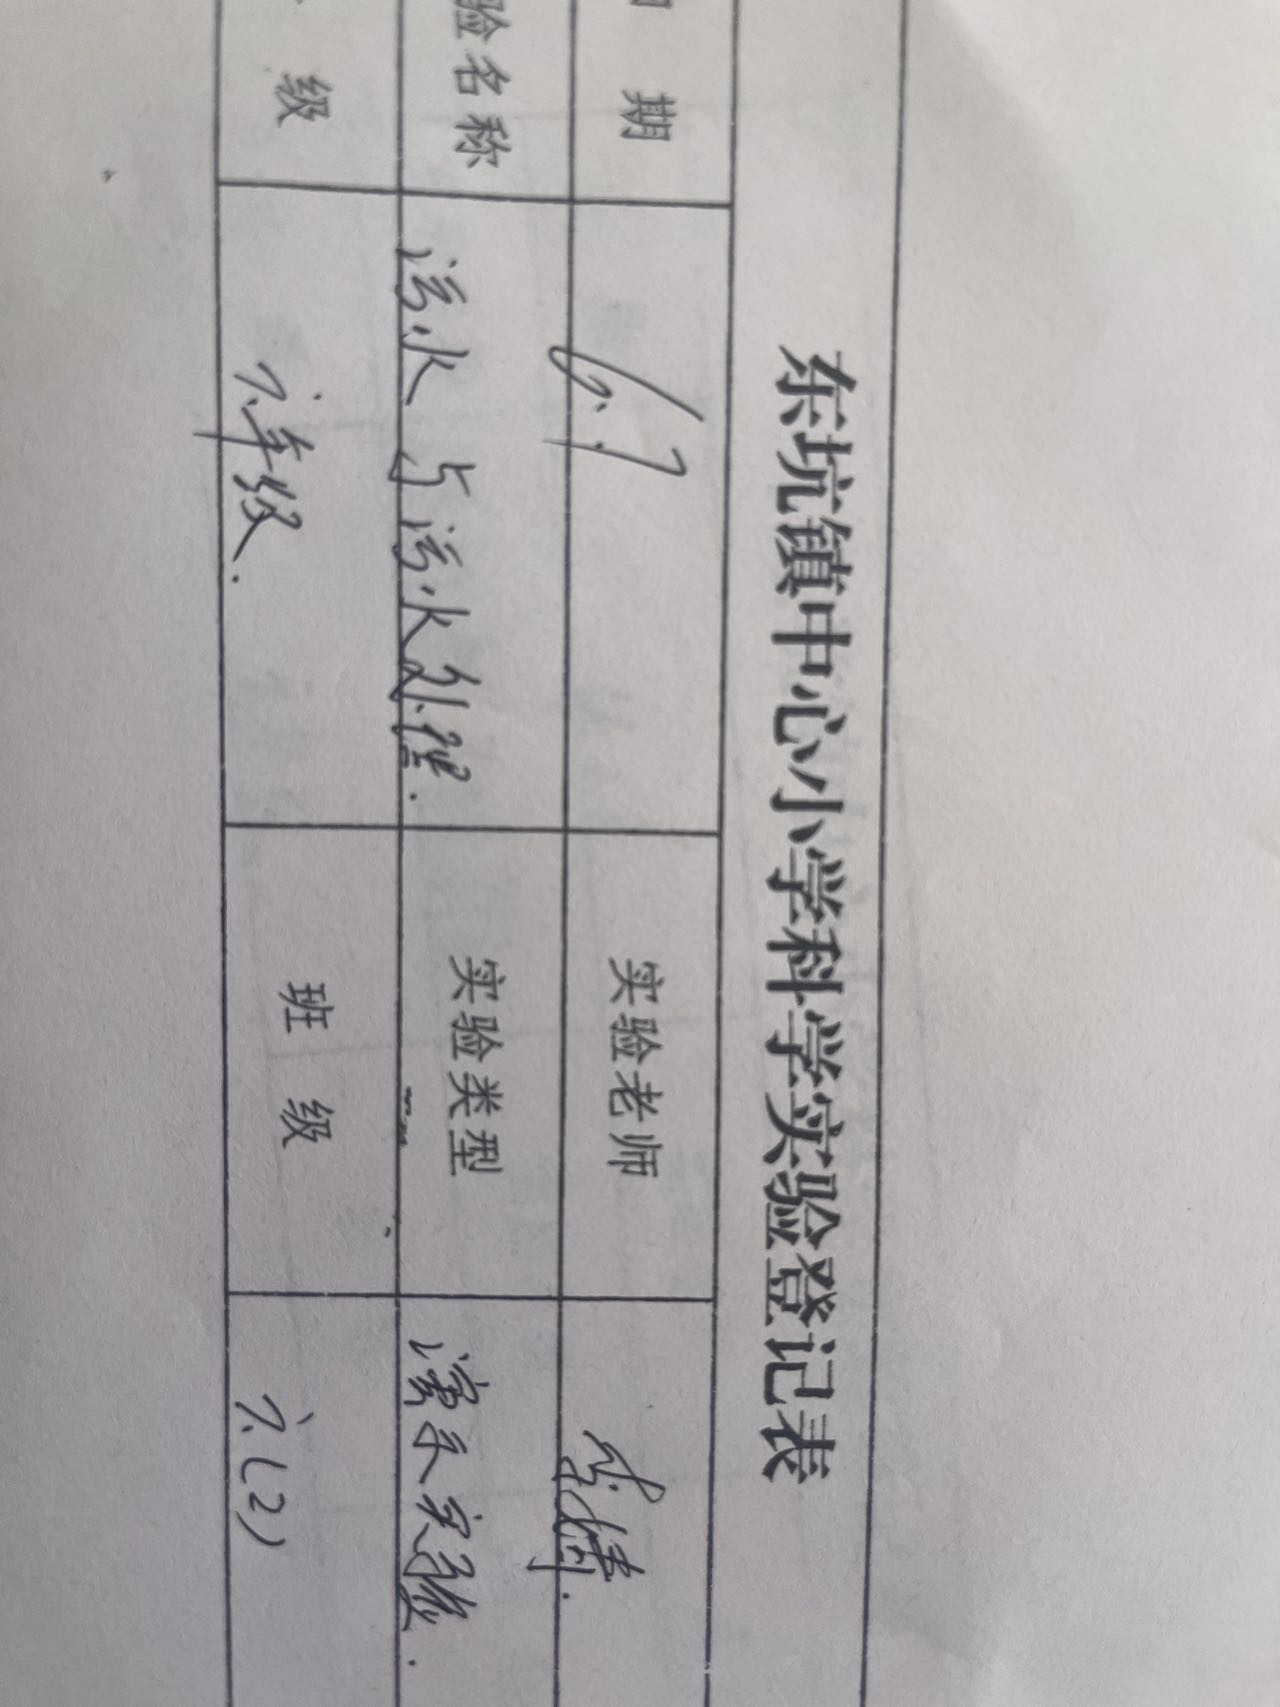 东坑镇中心小学科学实验登记表
期 6.7 实验老师
验名称 污水与污水处理. 实验类型 演示实验.
级 六年级. 班级 六(2)